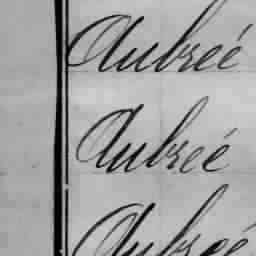 Aubreé
Aubreé
Aubreé